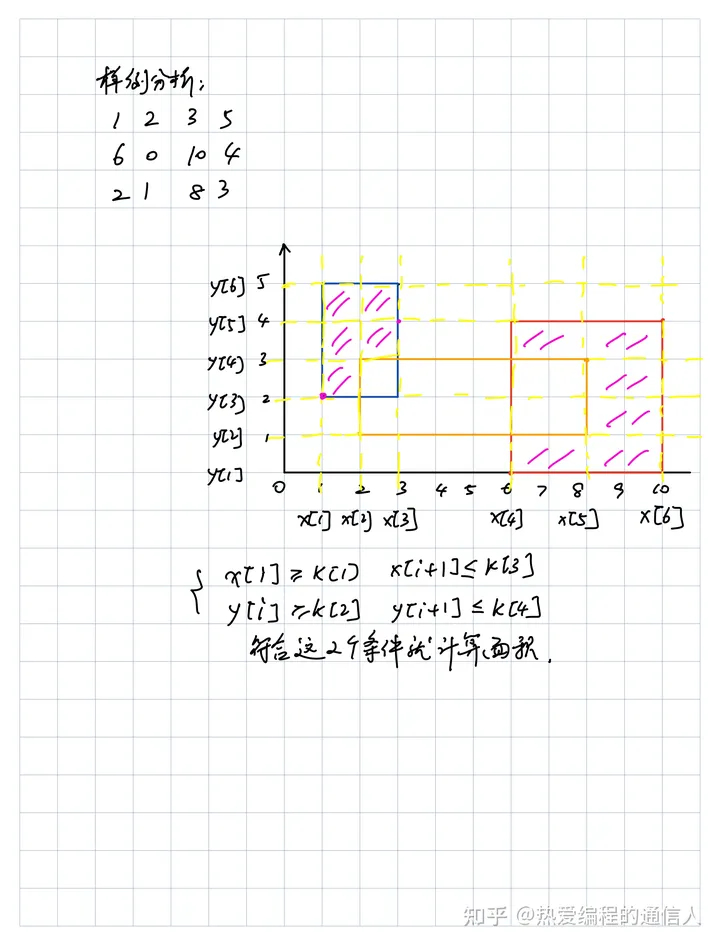 样例分析:
1 2 3 5
6 0 10 4
2 1 8 3
y[6] 5
y[5] 4
y[4] 3
y[3] 2
y[2] 1
y[1]
0 1 2 3 4 5 6 7 8 9 10
x[1] x[2] x[3] x[4] x[5] x[6]
x[1] ≥ k[1) x[i+1] ≤ k[3]
y[i] ≥ k[2] y[i+1] ≤ k[4]
符合这2个条件就计算面积.
知乎 @热爱编程的通信人